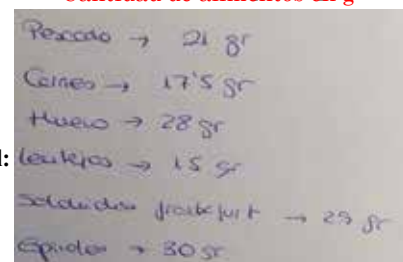 Cantidad de alimentos en g
Pescado → 21 gr
Carnes → 17'5 gr
Huevo → 28 gr
l: Lentejas → 15 gr
Salchichas frankfurt → 29 gr
→ 30 gr